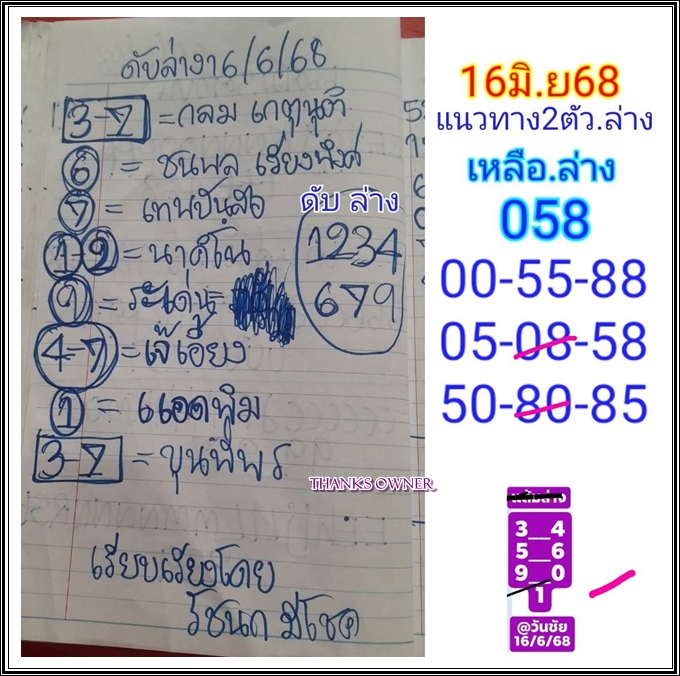 ดับล่าง16/6/68
3-7 = กลม เกตุนุติ
6 = ชนพล เรียงพงศ์
7 = เทพบันลือ
1-9 = นาคีโน
9 = ระเด่น =
4-7 = เจ๊เอี่ยง
1 = แอดพิม
3-7 = ขุนพี่พร
ดับ ล่าง
1234
679
THANKS OWNER
เรียบเรียงโดย
รัชนก มีโชค
16มิ.ย68
แนวทาง2ตัว.ล่าง
เหลือ.ล่าง
058
00-55-88
05-08-58
50-80-85
แต้มล่าง
3__4
5__6
9__0
1
@วันชัย
16/6/68